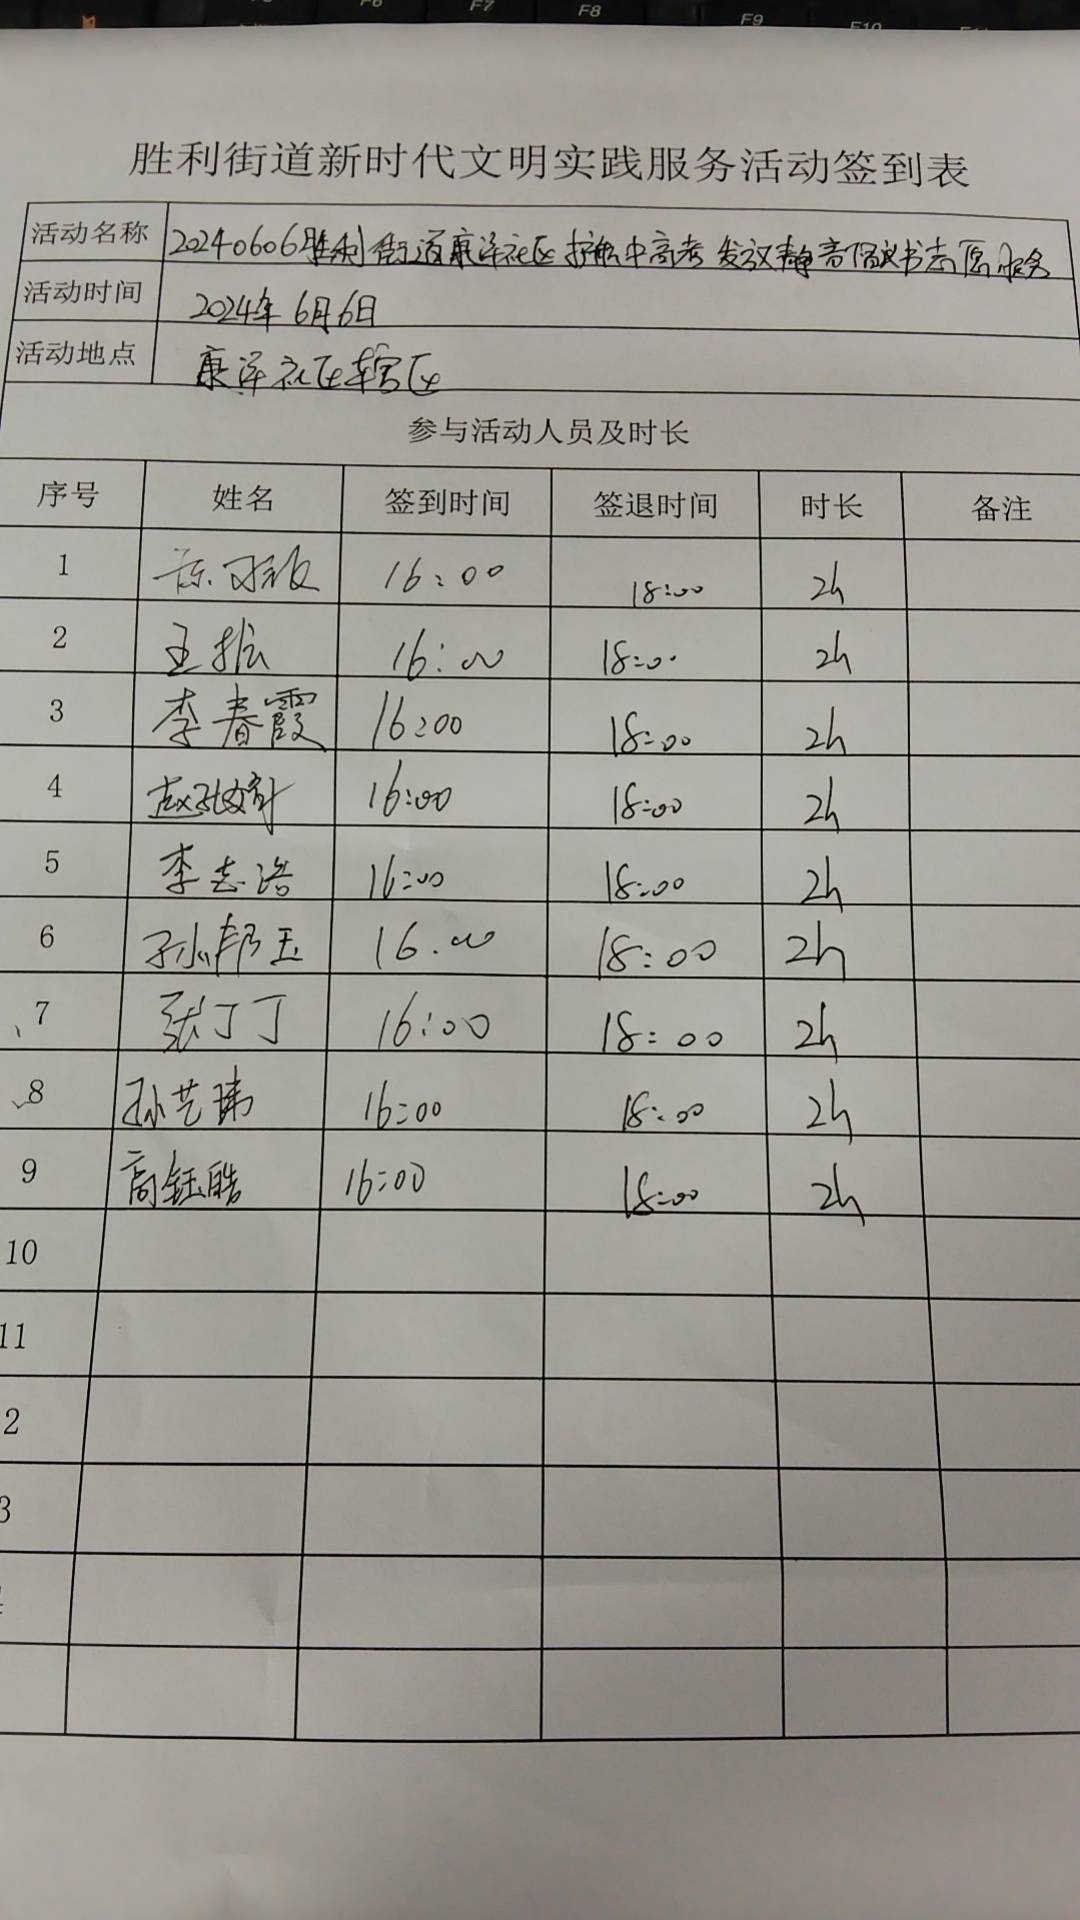 F7
F8
F9
F10
胜利街道新时代文明实践服务活动签到表
活动名称 20240606胜利街道康泽社区护航中高考发放静音倡议书志愿服务
活动时间 2024年6月6日
活动地点 康泽社区辖区
参与活动人员及时长
序号 姓名 签到时间 签退时间 时长 备注
1 16:00 18:00 2h
2 王振 16:00 18:00 2h
3 李春霞 16:00 18:00 2h
4 16:00 18:00 2h
5 李志浩 16:00 18:00 2h
6 孙邦玉 16:00 18:00 2h
7 张丁丁 16:00 18:00 2h
8 孙艺玮 16:00 18:00 2h
9 高钰皓 16:00 18:00 2h
10
11
2
3